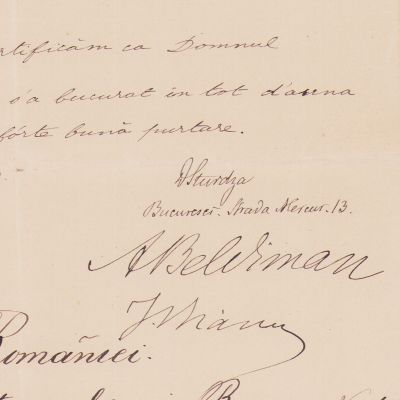 rtificăm ca Domnul
s'a bucurat în tot d'auna
fórte bună purtare.
DSturdza
Bucuresci. Strada Mercur. 13.
ABeldiman
României.